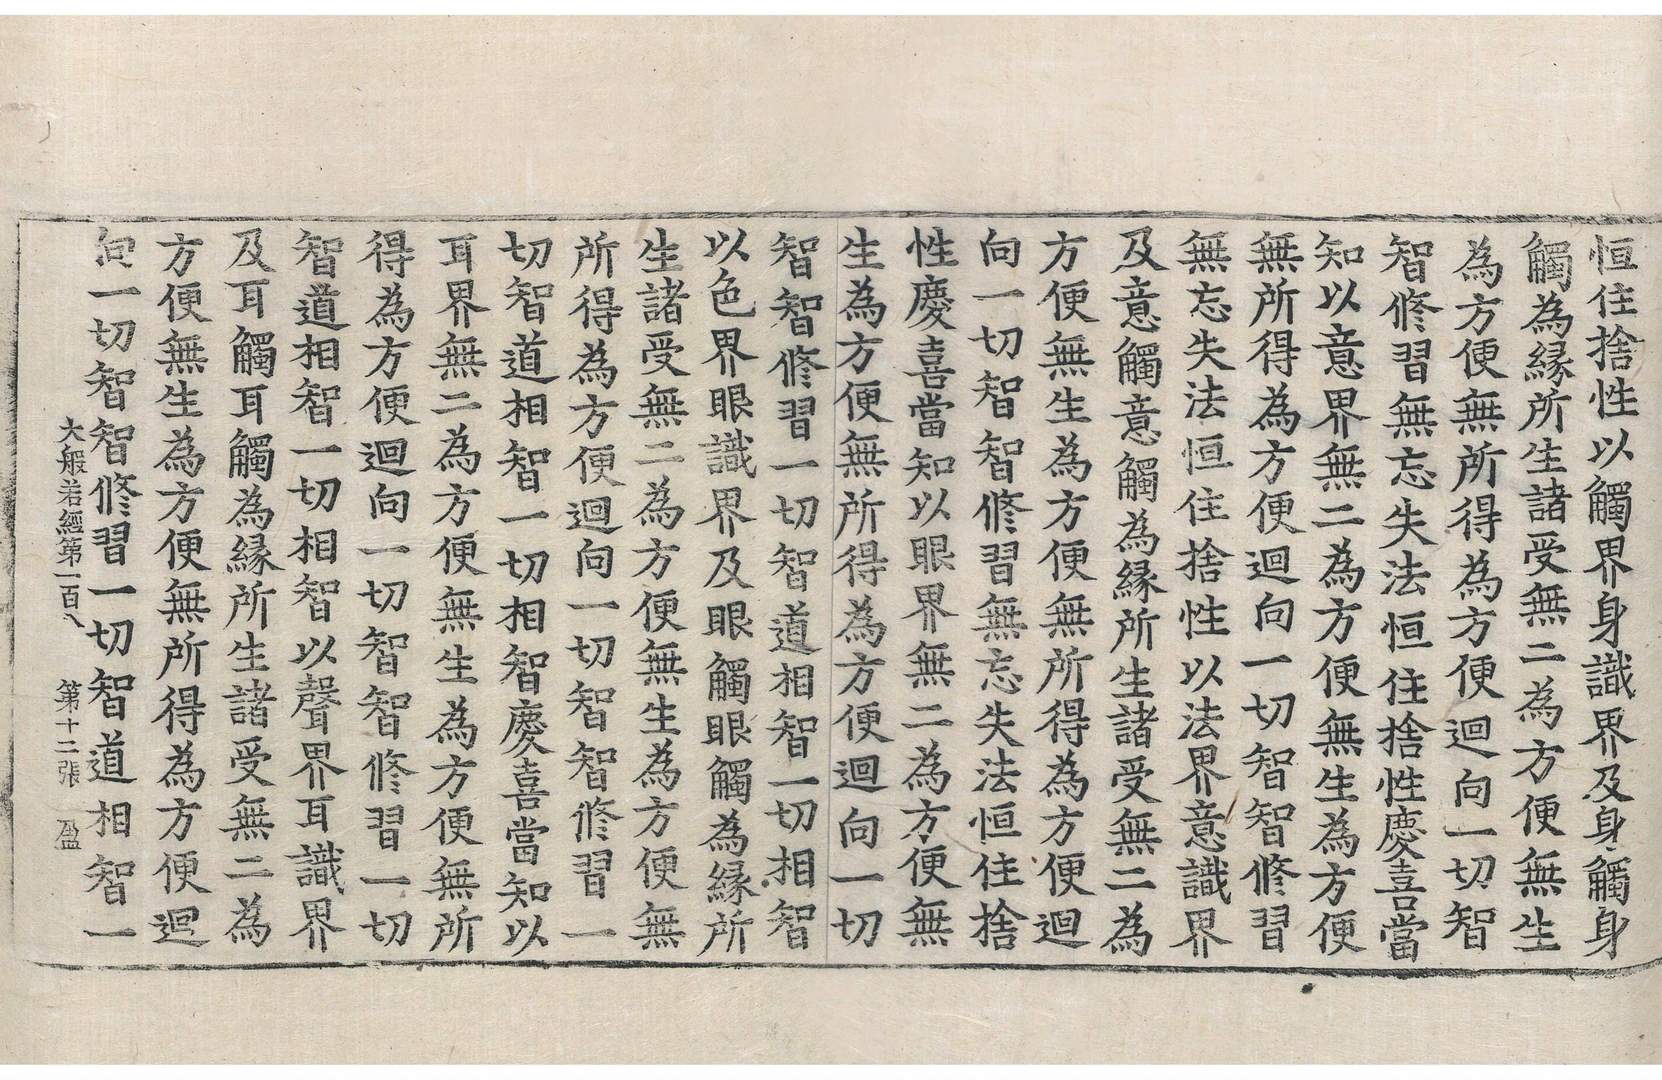 恒住捨性以觸界身識界及身觸身
觸為縁所生諸受無二為方便無生
為方便無所得為方便迴向一切智
智修習無忘失法恒住捨性慶喜當
知以意界無二為方便無生為方便
無所得為方便迴向一切智智修習
無忘失法恒住捨性以法界意識界
及意觸意觸為縁所生諸受無二為
方便無生為方便無所得為方便迴
向一切智智修習無忘失法恒住捨
性慶喜當知以眼界無二為方便無
生為方便無所得為方便迴向一切
智智修習一切智道相智一切相智
以色界眼識界及眼觸眼觸為縁所
生諸受無二為方便無生為方便無
所得為方便迴向一切智智修習一
切智道相智一切相智慶喜當知以
耳界無二為方便無生為方便無所
得為方便迴向一切智智修習一切
智道相智一切相智以聲界耳識界
及耳觸耳觸為縁所生諸受無二為
方便無生為方便無所得為方便迴
向一切智智修習一切智道相智一
大般若經第一百八 第十二張 盈